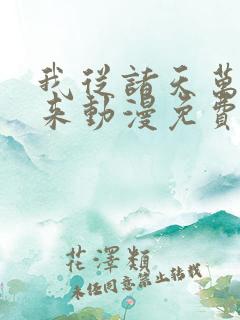 我從諸天萬
來動漫免費
花澤類
未经同意禁止转载